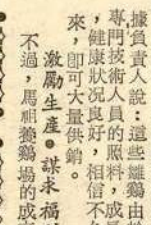 據負責人說：這些雛鷄由
專門技術人員的照料，成長
，健康狀况良好，相信不久
來，卽可大量供銷。
激勵生產。謀求福
不過，馬祖養鷄場的成